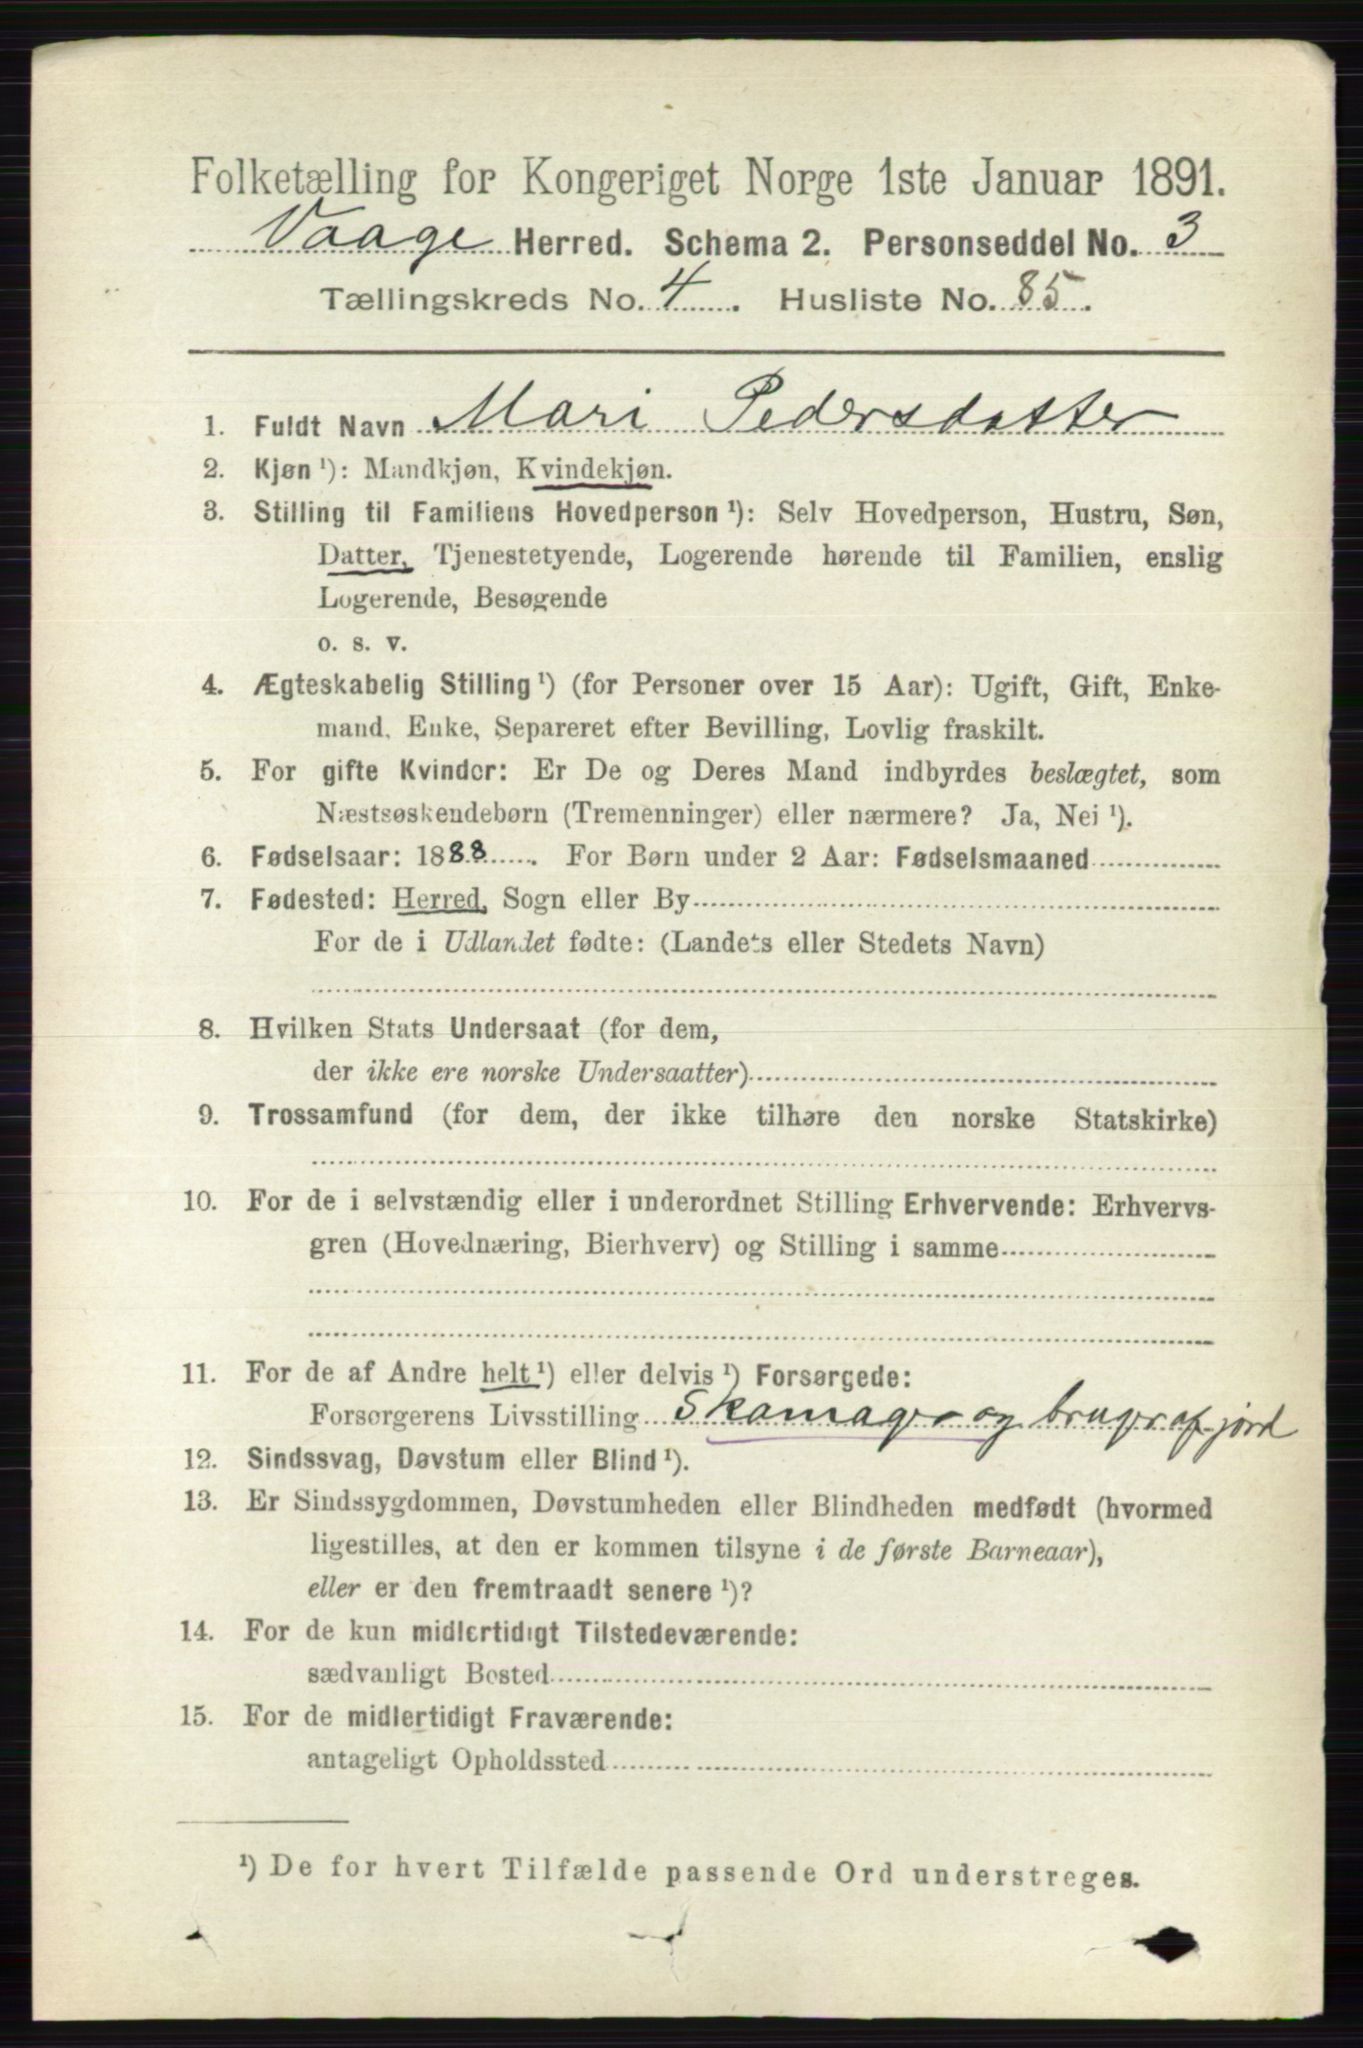 Folketælling for Kongeriget Norge 1ste Januar 1891.
Vaage Herred. Schema 2. Personseddel No. 3
Tællingskreds No. 4. Husliste No. 85.
1. Fuldt Navn Mari Pedersdatter
2. Kjøn ¹): Mandkjøn, Kvindekjøn.
3. Stilling til Familiens Hovedperson ¹): Selv Hovedperson, Hustru, Søn,
Datter, Tjenestetyende, Logerende hørende til Familien, enslig
Logerende, Besøgende
o. s. v.
4. Ægteskabelig Stilling ¹) (for Personer over 15 Aar): Ugift, Gift, Enke-
mand, Enke, Separeret efter Bevilling, Lovlig fraskilt.
5. For gifte Kvinder: Er De og Deres Mand indbyrdes beslægtet, som
Næstsøskendebørn (Tremenninger) eller nærmere? Ja, Nei ¹).
6. Fødselsaar: 1888. For Børn under 2 Aar: Fødselsmaaned
7. Fødested: Herred, Sogn eller By
For de i Udlandet fødte: (Landets eller Stedets Navn)
8. Hvilken Stats Undersaat (for dem,
der ikke ere norske Undersaatter)
9. Trossamfund (for dem, der ikke tilhøre den norske Statskirke)
10. For de i selvstændig eller i underordnet Stilling Erhvervende: Erhvervs-
gren (Hovednæring, Bierhverv) og Stilling i samme
11. For de af Andre helt ¹) eller delvis ¹) Forsørgede:
Forsørgerens Livsstilling Skomager og bruger af jord
12. Sindssvag, Døvstum eller Blind ¹).
13. Er Sindssygdommen, Døvstumheden eller Blindheden medfødt (hvormed
ligestilles, at den er kommen tilsyne i de første Barneaar),
eller er den fremtraadt senere ¹)?
14. For de kun midlertidigt Tilstedeværende:
sædvanligt Bosted
15. For de midlertidigt Fraværende:
antageligt Opholdssted
¹) De for hvert Tilfælde passende Ord understreges.